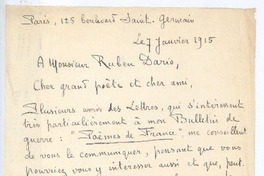 Paris, 125 boulevard Saint-Germain
Le 7 Janvier 1915
A Monsieur Ruben Dario,
Cher grand poète et cher ami,
Plusieurs amis des Lettres, qui s'intéressent
très particulièrement à mon Bulletin de
guerre : "Poèmes de France", me conseillent
de vous le communiquer, pensant que vous
pourriez vous y intéresser aussi et que, peut.